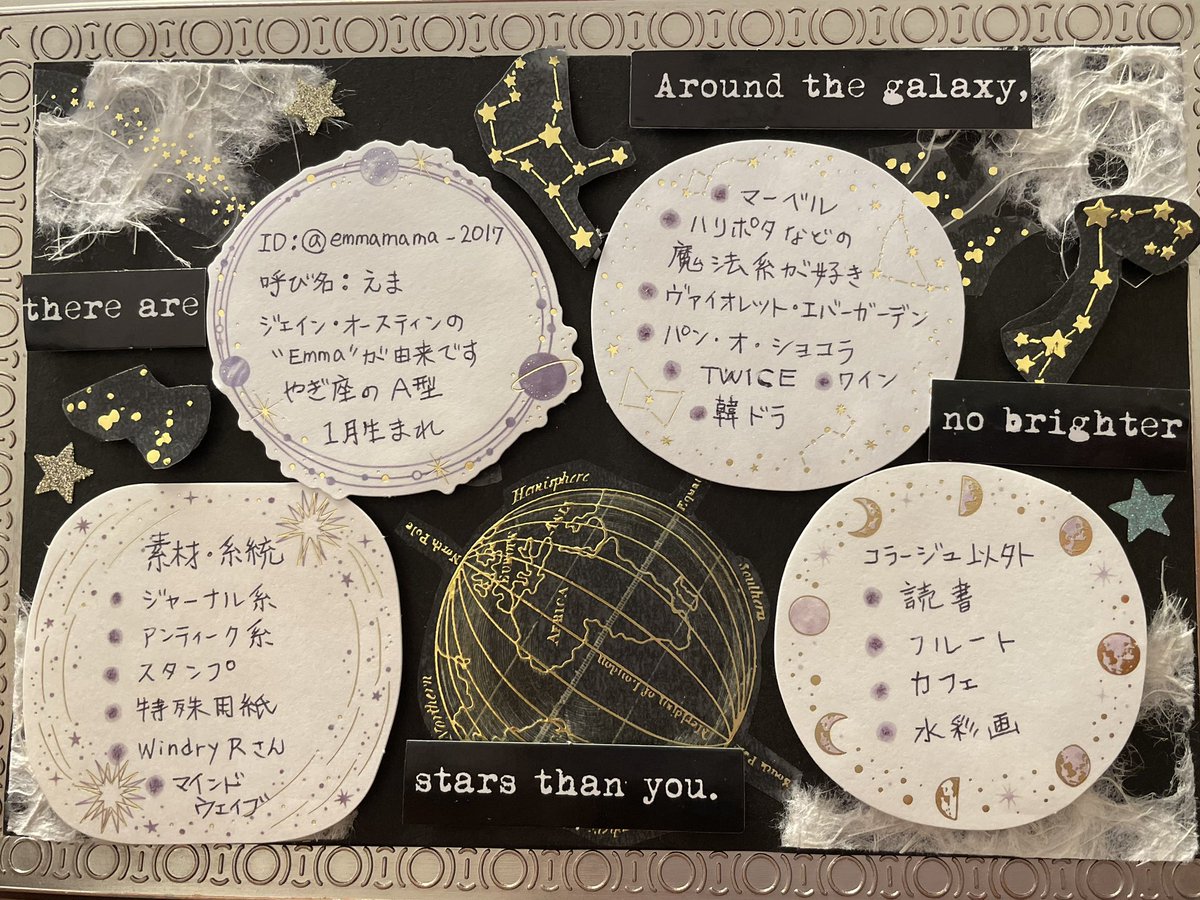 Around the galaxy,
there are
no brighter
stars than you.
ID:@emmamama-2017
呼び名:えま
ジェイン・オースティンの
"Emma"が由来です
やぎ座のA型
1月生まれ
マーベル
ハリポタなどの
魔法系が好き
ヴァイオレット・エバーガーデン
パン・オ・ショコラ
TWICE ワイン
韓ドラ
素材・系統
ジャーナル系
アンティーク系
スタンプ
特殊用紙
Windry Rさん
マインド
ウェイブ
コラージュ以外
読書
フルート
カフェ
水彩画
Hemisphere
North Pole
Northern
Southern
AFRICA
Meridian of London